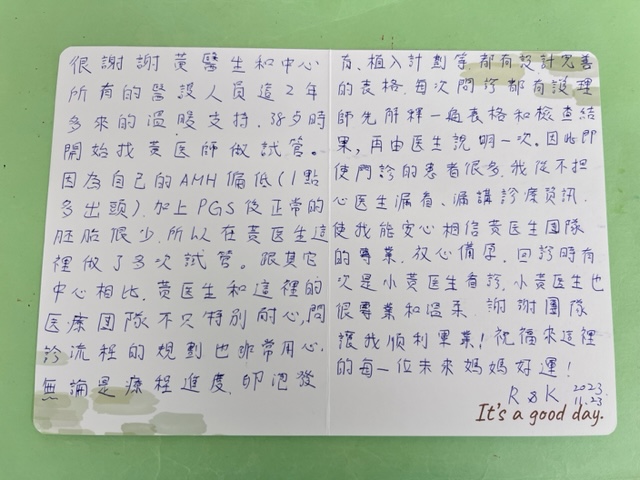 很謝謝黃醫生和中心
所有的醫護人員這2年
多來的溫暖支持.38歲時
開始找黃医師做試管。
因為自己的AMH偏低(1點
多出頭).加上PGS後正常的
胚胎很少.所以在黃医生這
裡做了多次試管。跟其它
中心相比.黃医生和這裡的
医療團隊不只特別耐心,問
診流程的規劃也非常用心.
無論是療程進度.卵泡發
育.植入計劃等.都有設計完善
的表格.每次問診都有護理
師先解釋一遍表格和檢查結
果,再由医生說明一次。因此即
使門診的患者很多.我從不担
心医生漏看、漏講診療資訊.
使我能安心相信黃医生團隊
的專業.放心備孕.回診時有
次是小黃医生看診.小黃医生也
很專業和溫柔.謝謝團隊
讓我順利畢業!祝福來這裡
的每一位未來媽媽好運!
R&K 2023.
11.23.
It's a good day.